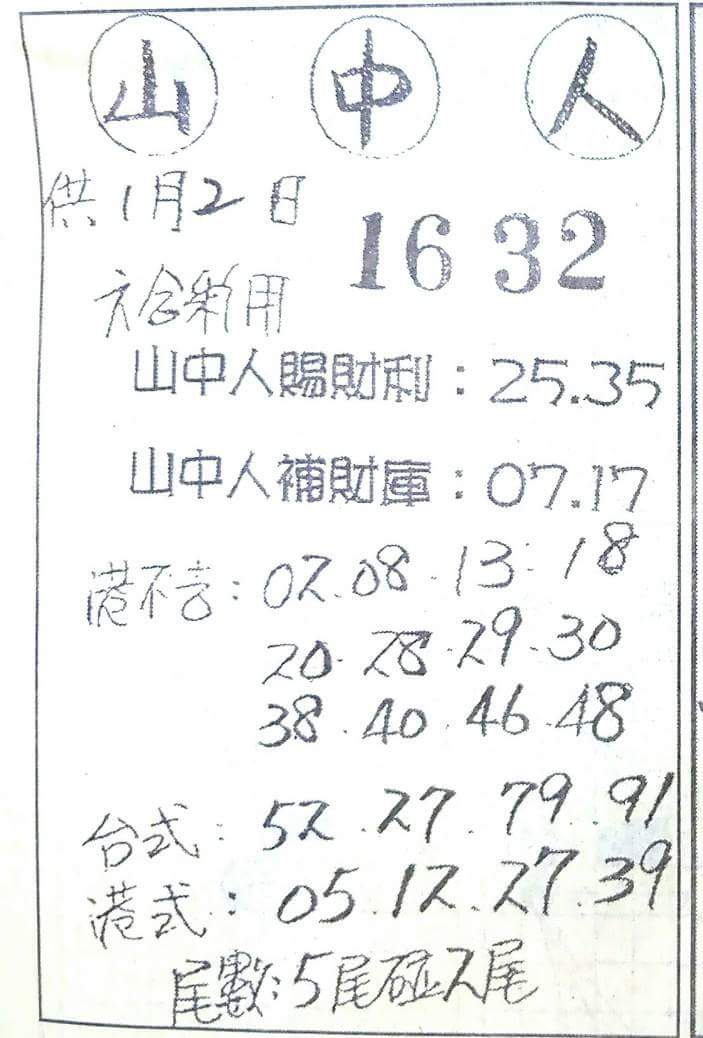 山 中 人
供1月2日
16 32
六合彩用
山中人賜財利：25.35
山中人補財庫：07.17
港不去：02.08.13.18
20.28.29.30
38.40.46.48
台式：52.27.79.91
港式：05.12.27.39
尾數：5尾碰2尾